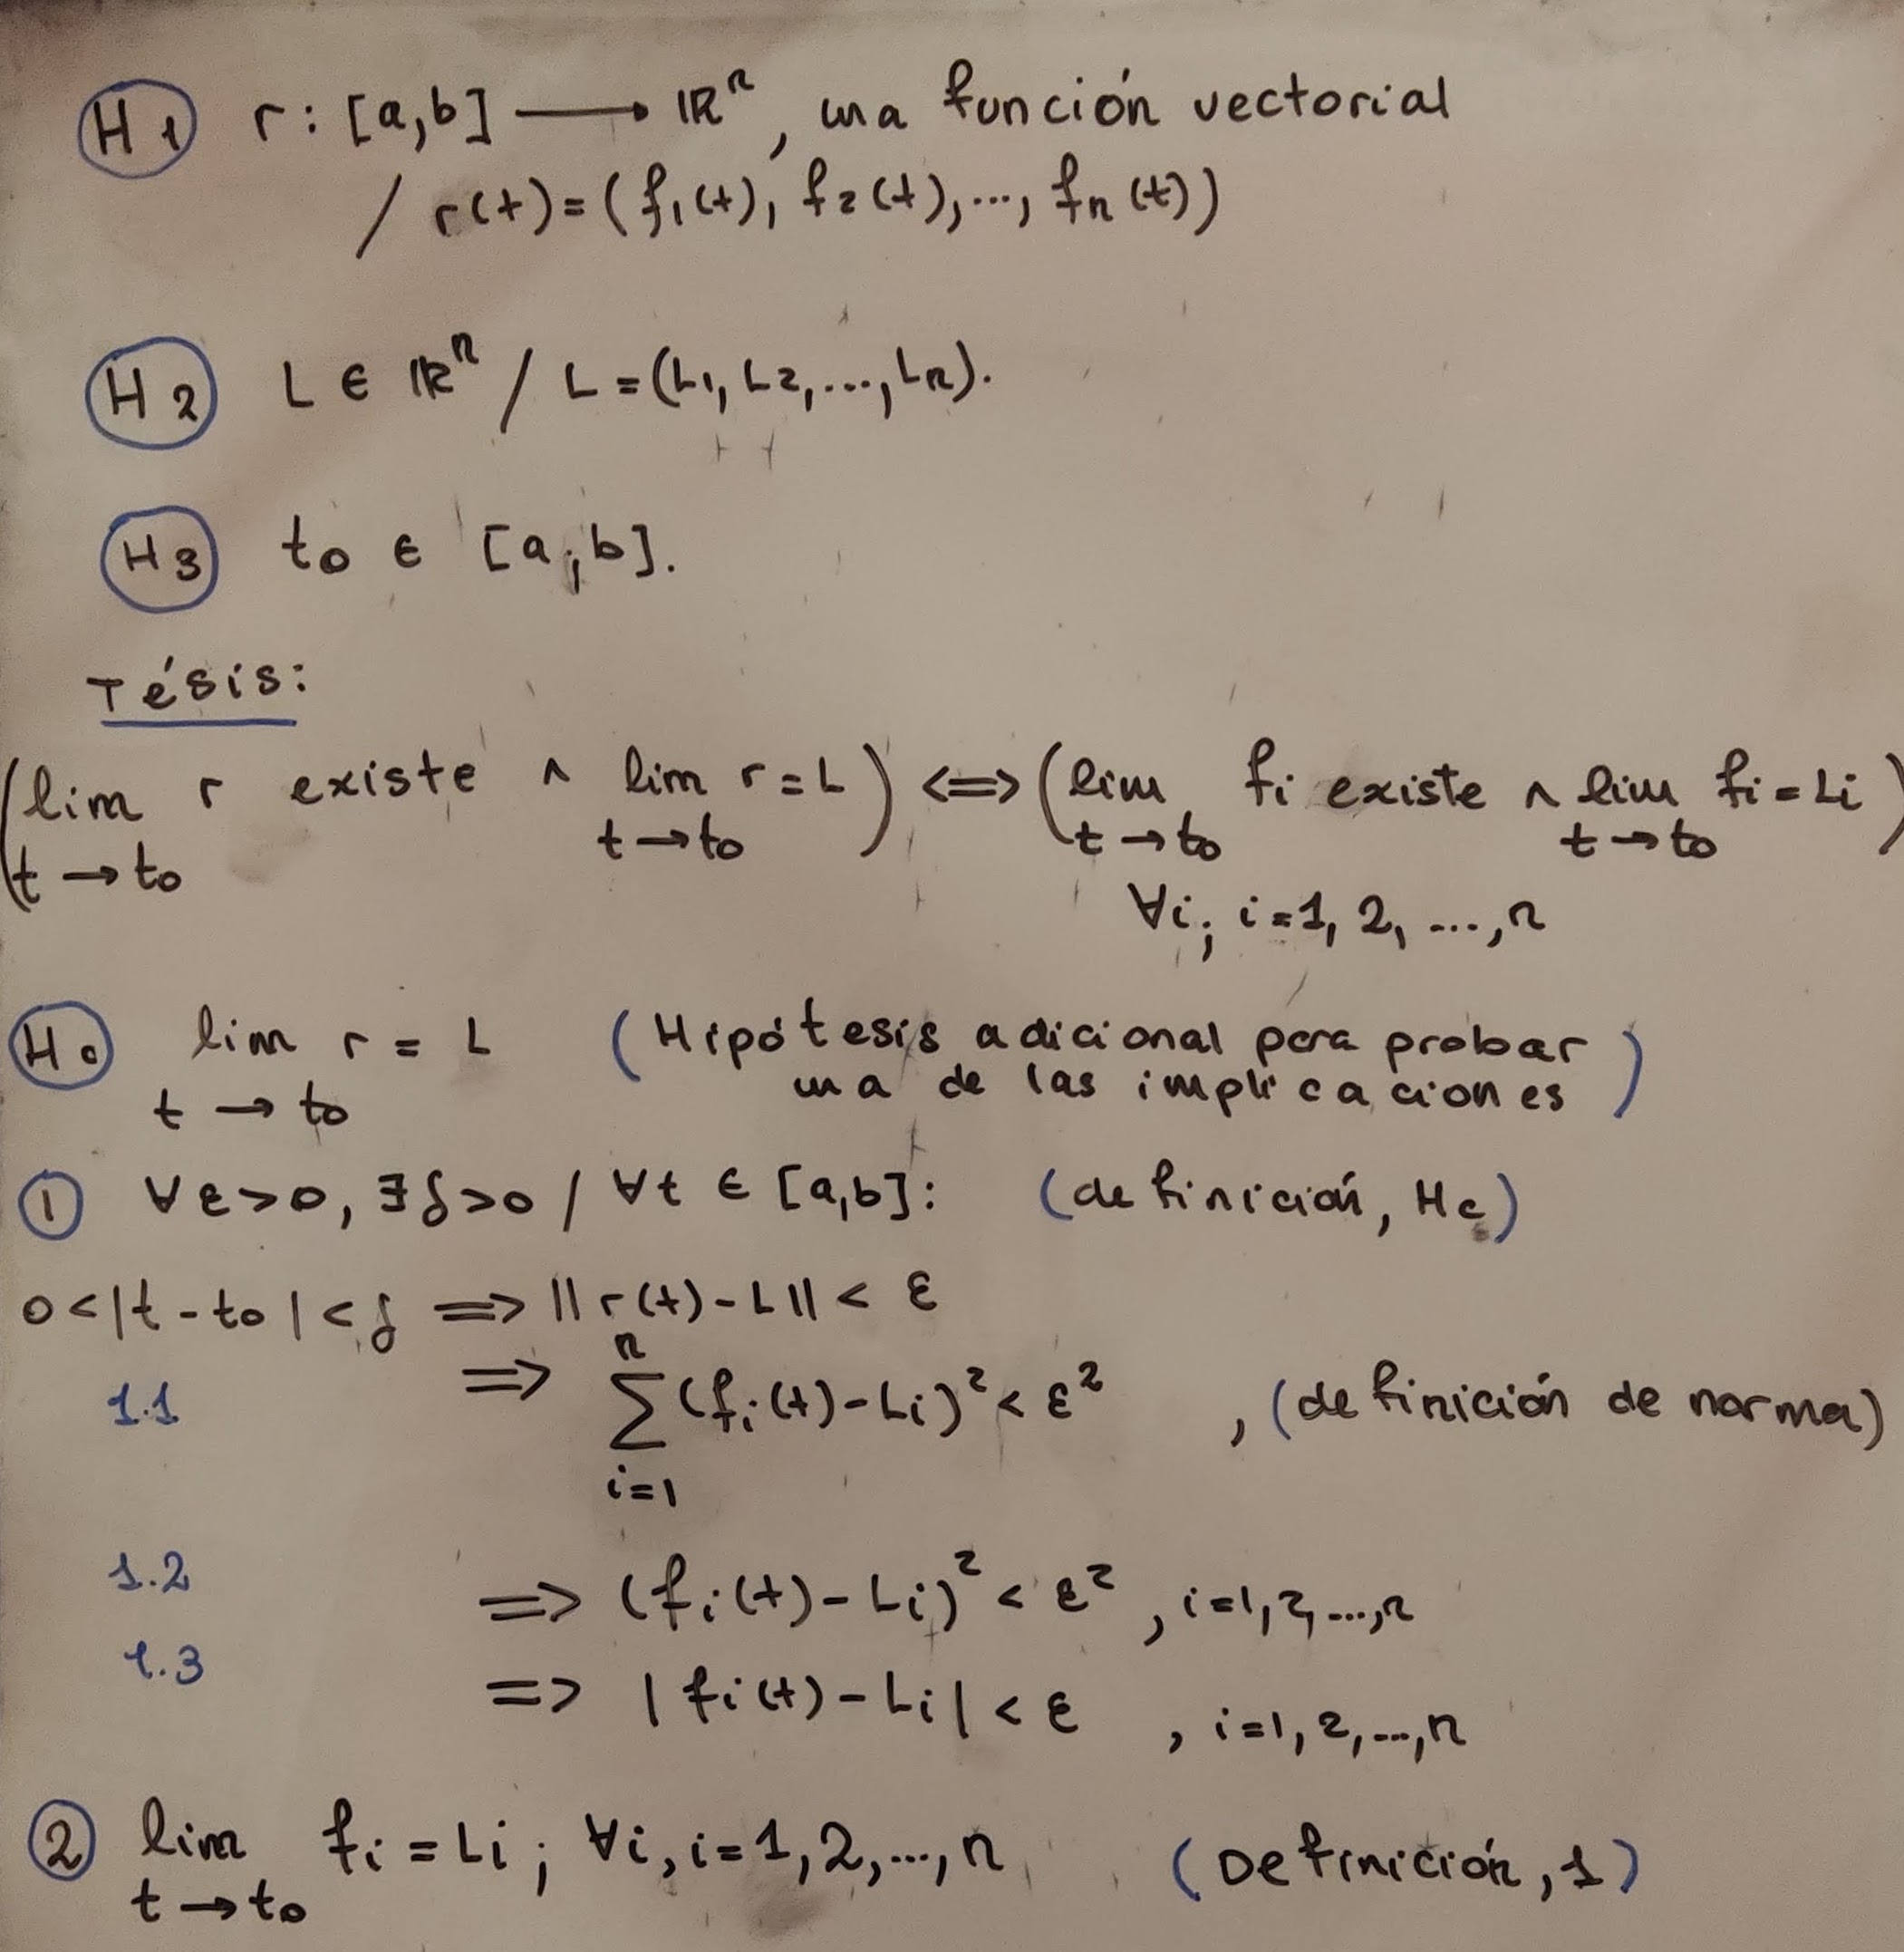 H1 r: [a,b] ⟶ ℝⁿ, una función vectorial
/ r(t)=(f₁(t), f₂(t),..., fₙ(t))
H2 L ∈ ℝⁿ / L=(L₁, L₂,...,Lₙ).
H3 t₀ ∈ [a;b].
Tésis:
(lim r existe ∧ lim r=L) <=> (lim fᵢ existe ∧ lim fᵢ=Lᵢ)
t→t₀ t→t₀ t→t₀ t→t₀
∀i; i=1, 2, ...,n
H₀ lim r = L (Hipótesis adicional para probar
t → t₀ una de las implicaciones)
① ∀ε>0, ∃δ>0 / ∀t ∈ [a,b]: (definición, H₀)
0<|t-t₀|<δ => ||r(t)-L||< ε
1.1 => n∑i=1 (fᵢ(t)-Lᵢ)²< ε² , (definición de norma)
1.2 => (fᵢ(t)-Lᵢ)²< ε² , i=1,2,...,n
1.3 => |fᵢ(t)-Lᵢ|< ε , i=1,2,...,n
② lim fᵢ=Lᵢ; ∀i, i=1,2,...,n (Definición, 1)
t→t₀